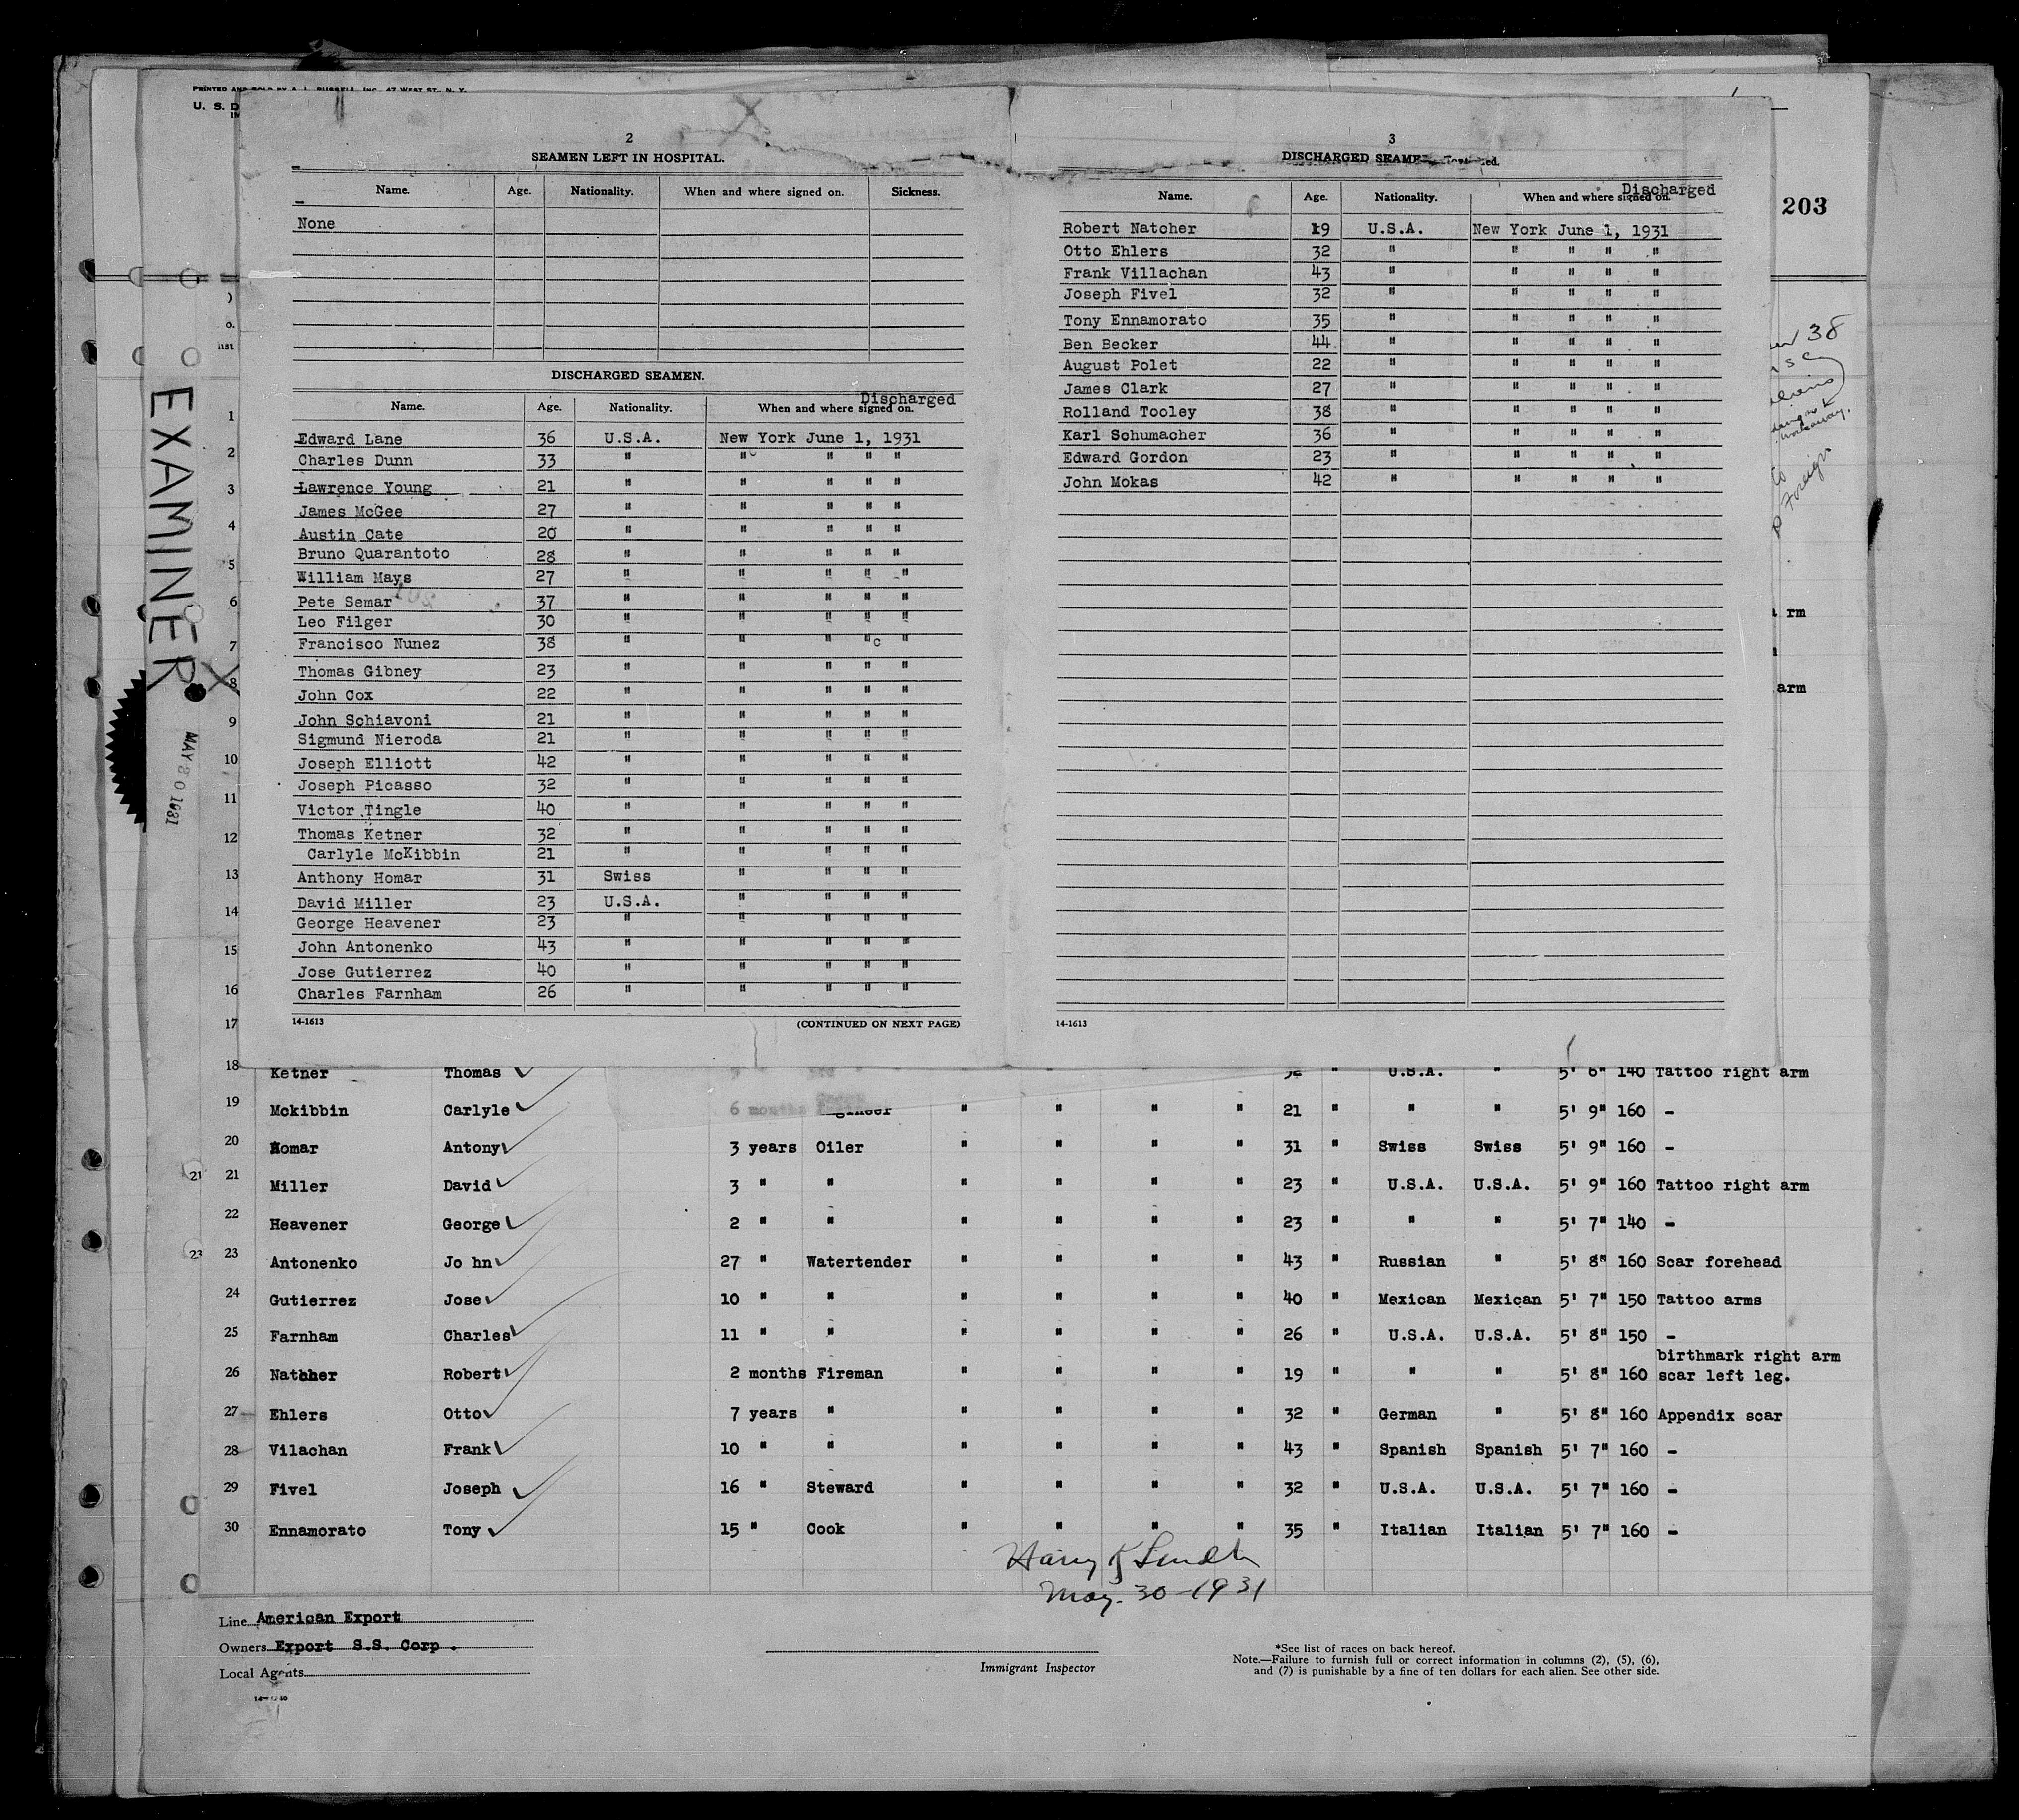 PRINTED AND SOLD BY A. L. RUSSELL, INC. 47 WEST ST., N. Y.
U. S. D
203
2
SEAMEN LEFT IN HOSPITAL.
Name. Age. Nationality. When and where signed on. Sickness.
None
DISCHARGED SEAMEN.
Discharged
Name. Age. Nationality. When and where signed on.
Edward Lane 36 U.S.A. New York June 1, 1931
Charles Dunn 33 " " " " "
Lawrence Young 21 " " " " "
James McGee 27 " " " " "
Austin Cate 20 " " " " "
Bruno Quarantoto 28 " " " " "
William Mays 27 " " " " "
Pete Semar 37 " " " " "
Leo Filger 30 " " " " "
Francisco Nunez 38 " " " "c "
Thomas Gibney 23 " " " " "
John Cox 22 " " " " "
John Schiavoni 21 " " " " "
Sigmund Nieroda 21 " " " " "
Joseph Elliott 42 " " " " "
Joseph Picasso 32 " " " " "
Victor Tingle 40 " " " " "
Thomas Ketner 32 " " " " "
Carlyle McKibbin 21 " " " " "
Anthony Homar 31 Swiss " " " "
David Miller 23 U.S.A. " " " "
George Heavener 23 " " " " "
John Antonenko 43 " " " " "
Jose Gutierrez 40 " " " " "
Charles Farnham 26 " " " " "
14-1613 (CONTINUED ON NEXT PAGE)
3
DISCHARGED SEAMEN
Discharged
Name. Age. Nationality. When and where signed on.
Robert Natcher 19 U.S.A. New York June 1, 1931
Otto Ehlers 32 " " " " "
Frank Villachan 43 " " " " "
Joseph Fivel 32 " " " " "
Tony Ennamorato 35 " " " " "
Ben Becker 44 " " " " "
August Polet 22 " " " " "
James Clark 27 " " " " "
Rolland Tooley 38 " " " " "
Karl Schumacher 36 " " " " "
Edward Gordon 23 " " " " "
John Mokas 42 " " " " "
14-1613
EXAMINER
MAY 30 1931
38
to
Foreign
arm
arm
1
2
3
4
5
6
7
8
9
10
11
12
13
14
15
16
17
18 Ketner Thomas 32 " U.S.A. " 5' 6" 140 Tattoo right arm
19 Mckibbin Carlyle 6 months " " " " 21 " " " 5' 9" 160 -
20 Homar Antony 3 years Oiler " " " " 31 " Swiss Swiss 5' 9" 160 -
21 21 Miller David 3 " " " " " " 23 " U.S.A. U.S.A. 5' 9" 160 Tattoo right arm
22 Heavener George 2 " " " " " " 23 " " " 5' 7" 140 -
23 23 Antonenko Jo hn 27 " Watertender " " " " 43 " Russian " 5' 8" 160 Scar forehead
24 Gutierrez Jose 10 " " " " " " 40 " Mexican Mexican 5' 7" 150 Tattoo arms
25 Farnham Charles 11 " " " " " " 26 " U.S.A. U.S.A. 5' 8" 150 -
birthmark right arm
26 Natcher Robert 2 months Fireman " " " " 19 " " " 5' 8" 160 scar left leg.
27 Ehlers Otto 7 years " " " " " 32 " German " 5' 8" 160 Appendix scar
28 Vilachan Frank 10 " " " " " " 43 " Spanish Spanish 5' 7" 160 -
29 Fivel Joseph 16 " Steward " " " " 32 " U.S.A. U.S.A. 5' 7" 160 -
30 Ennamorato Tony 15 " Cook " " " " 35 " Italian Italian 5' 7" 160 -
Harry
May. 30-1931
Line American Export
Owners Export S.S. Corp.
Local Agents
Immigrant Inspector
*See list of races on back hereof.
Note.—Failure to furnish full or correct information in columns (2), (5), (6),
and (7) is punishable by a fine of ten dollars for each alien. See other side.